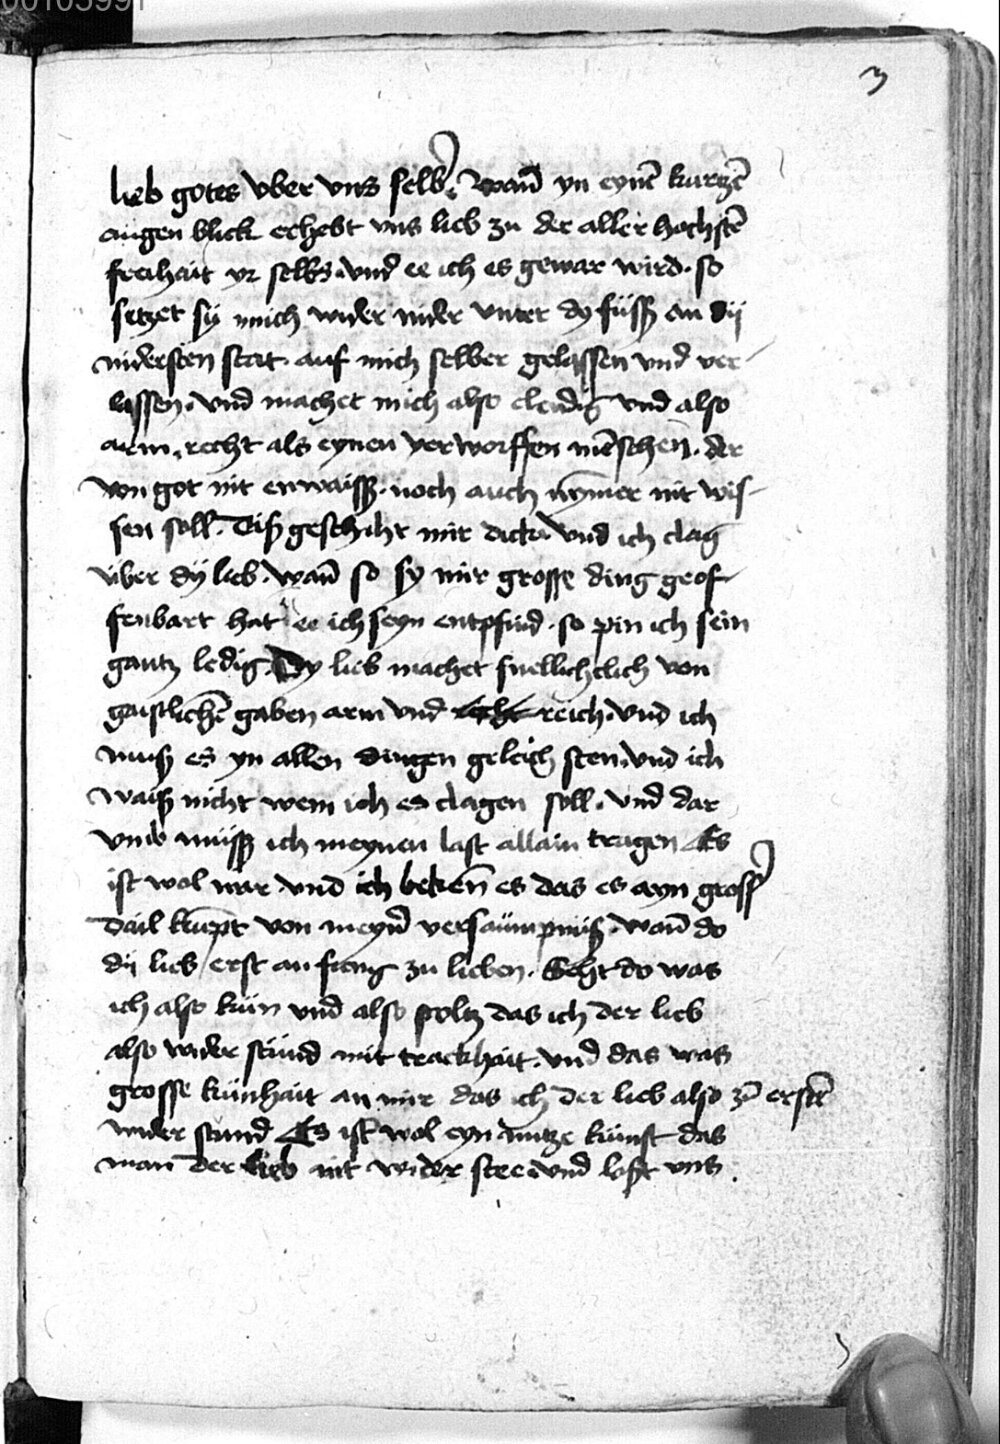 00105991
3
lieb gotes vber vns selber wan̄ yn eynē kurtzē
augen blick erhebt vns lieb zu der aller hochstē
freihait yr selbs · vnd ee ich es gewar wird · so
setzet sy mich wider nider vnter dy füsß an dij
nidersten stat · auf mich selber gelassen vnd ver-
lassen · vnd machet mich also elendig vnd also
arm · recht als eynen verworffen mēschen · der
von got nit enwaisß · noch auch nym̄er nit wis-
sen soll · Diß geschiht mir dick · vnd ich clag
über dij lieb · wan̄ so sy mir grosse ding geof-
fenbart hat ee ich seyn entpfind · so pin ich sein
gantz ledig · Dy lieb machet snellichclich von
gaistlichē gaben arm vnd reich · vnd ich
muß es yn allen dingen geleich sten · vnd ich
waiß nicht wem ich es clagen soll · vnd dar
vmb müsß ich meynen last allain tragen Es
ist wol war vnd ich beken̄ es das es ayn grosser
dail kūpt von meyner versaümpnüß · wan̄ do
dij lieb erst an fieng zu lieben · Seht do was
ich also kün vnd also stoltz das ich der lieb
also wider stünd mit trackhait · vnd das was
grosse künhait an mir das ich der lieb also zū erstē
wider stund Es ist wol eyn nutze kunst das
man der lieb nit wider stee vnd loßt vns